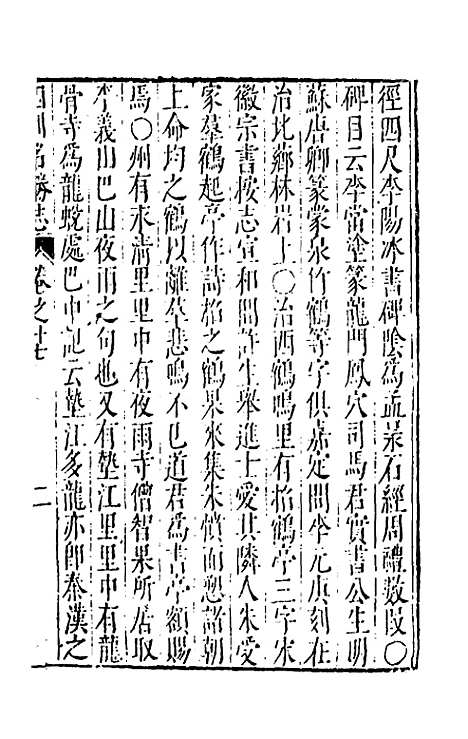 徑四尺李陽冰書碑陰為孟蜀石經周禮數段○
碑目云李當塗篆龍門鳳穴司馬君實書公生明
蘇唐卿篆蒙泉竹鶴等字俱嘉定間李元庚刻在
治北薌林岩上○治西鶴鳴里有招鶴亭三字宋
徽宗書按志宣和間許生舉進士愛其隣人朱受
家羣鶴起亭作詩招之鶴果來集朱憤而愬諸朝
上命均之鶴以離羣悲鳴不已道君為書亭額賜
焉○州有來清里里中有夜雨寺僧智果所居取
李義山巴山夜雨之句也又有墊江里里中有龍
骨寺為龍蛻處巴中記云墊江多龍亦即秦漢之
四川名勝志 卷之十七 二